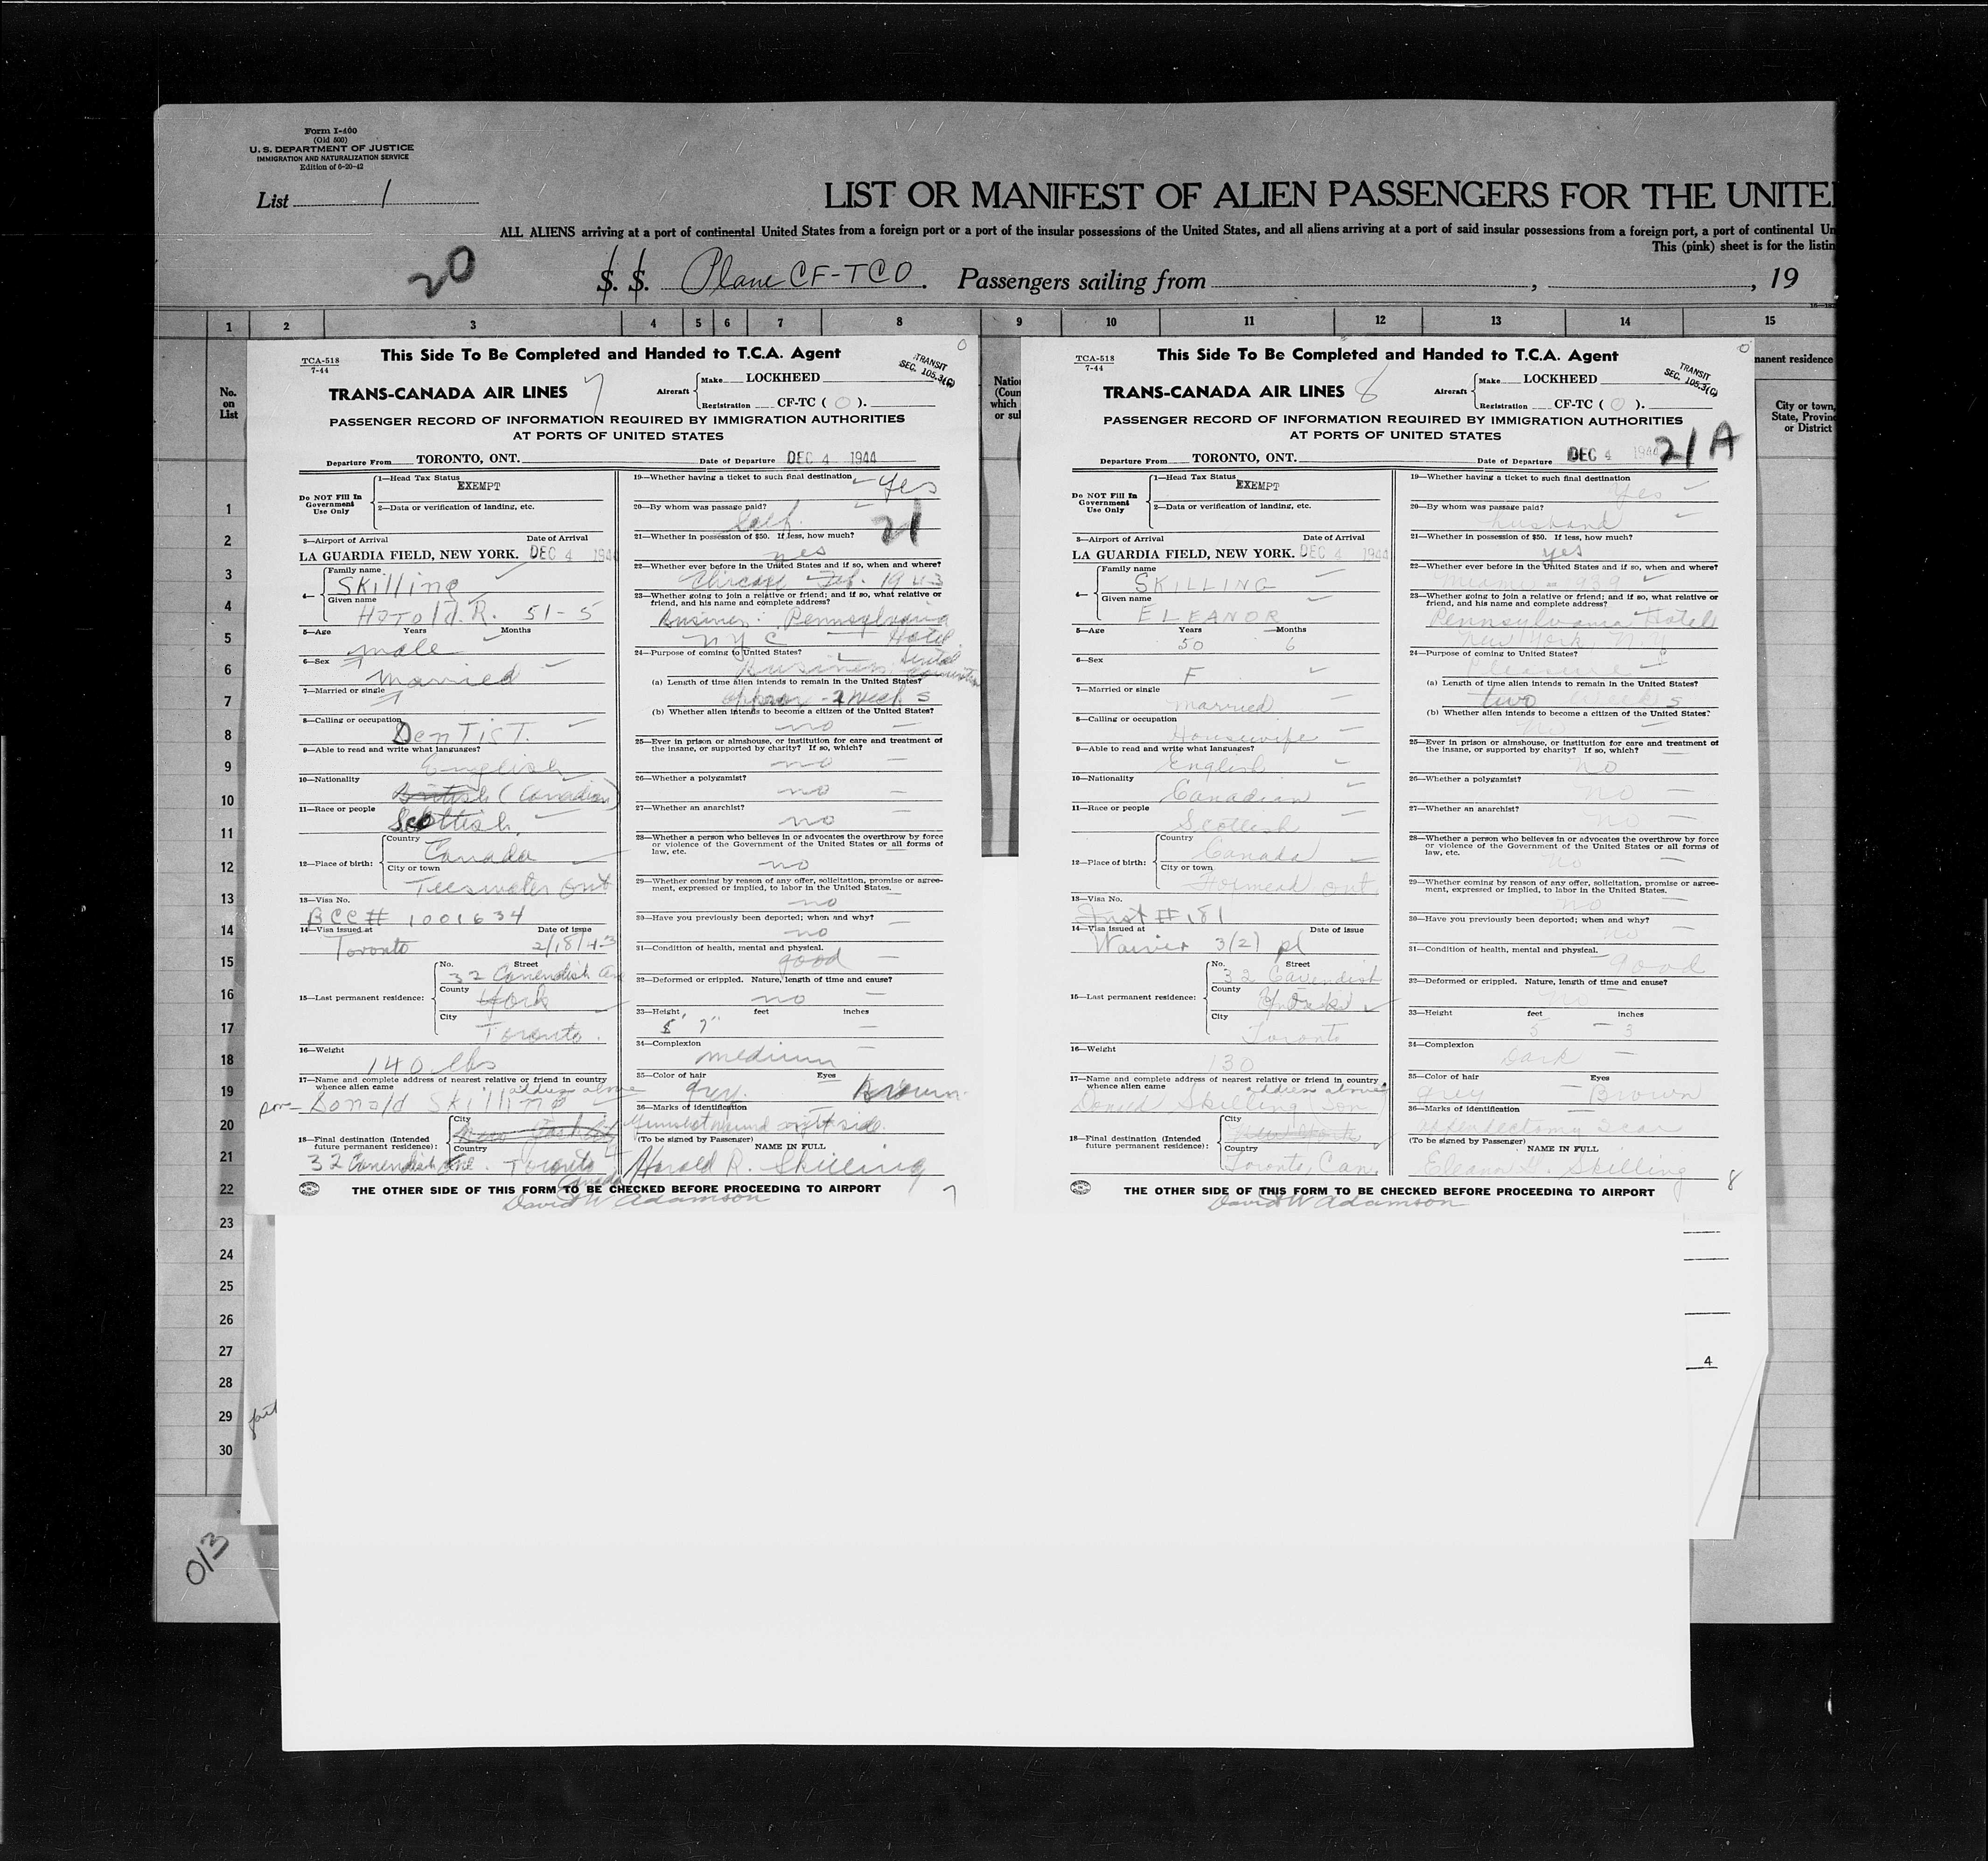 Form I-400
(Old 500)
U. S. DEPARTMENT OF JUSTICE
IMMIGRATION AND NATURALIZATION SERVICE
Edition of 6-20-42
List 1
LIST OR MANIFEST OF ALIEN PASSENGERS FOR THE UNITE
ALL ALIENS arriving at a port of continental United States from a foreign port or a port of the insular possessions of the United States, and all aliens arriving at a port of said insular possessions from a foreign port, a port of continental Un
This (pink) sheet is for the listin
20
S. S. Plane CF-TCO. Passengers sailing from , , 19
1 2 3 4 5 6 7 8 9 10 11 12 13 14 15
No.
on
List
Natio
(Coun
which
or sul
manent residence
City or town,
State, Provinc
or District
1
2
3
4
5
6
7
8
9
10
11
12
13
14
15
16
17
18
19
20
21
22
23
24
25
26
27
28
29
30
013
4
TCA-518
7-44
This Side To Be Completed and Handed to T.C.A. Agent
TRANSIT
SEC. 105.3(C)
TRANS-CANADA AIR LINES 7
Aircraft
Make LOCKHEED
Registration CF-TC ( O ).
PASSENGER RECORD OF INFORMATION REQUIRED BY IMMIGRATION AUTHORITIES
AT PORTS OF UNITED STATES
Departure From TORONTO, ONT. Date of Departure DEC 4 1944
Do NOT Fill In
Government
Use Only
1—Head Tax Status
EXEMPT
2—Data or verification of landing, etc.
3—Airport of Arrival Date of Arrival
LA GUARDIA FIELD, NEW YORK. DEC 4 194
4— Family name
Skilling
Given name
Harold. R. 51-5
5—Age Years Months
male
6—Sex
married
7—Married or single
8—Calling or occupation
Dentist.
9—Able to read and write what languages?
English
10—Nationality
British (Canadian)
11—Race or people
Scottish.
12—Place of birth:
Country
Canada
City or town
Teeswater Ont
13—Visa No.
BCC# 1001634
14—Visa issued at Date of issue
Toronto 2/18/43
15—Last permanent residence:
No. Street
32 Cavendish Ave
County
York
City
Toronto.
16—Weight
140 lbs
17—Name and complete address of nearest relative or friend in country
whence alien came
address above
son- Donald Skilling
18—Final destination (Intended
future permanent residence):
City
New York City
Country
32 Cavendish Ave. Toronto
Canada
19—Whether having a ticket to such final destination
Yes
20—By whom was passage paid?
Self.
21
21—Whether in possession of $50. If less, how much?
yes
22—Whether ever before in the United States and if so, when and where?
Chicago Feb. 1943
23—Whether going to join a relative or friend; and if so, what relative or
friend, and his name and complete address?
Business. Pennsylvania
NYC Hotel
24—Purpose of coming to United States?
Business Dental
(a) Length of time alien intends to remain in the United States?
approx - 2 weeks
(b) Whether alien intends to become a citizen of the United States?
no
25—Ever in prison or almshouse, or institution for care and treatment of
the insane, or supported by charity? If so, which?
no
26—Whether a polygamist?
no
27—Whether an anarchist?
no
28—Whether a person who believes in or advocates the overthrow by force
or violence of the Government of the United States or all forms of
law, etc.
no
29—Whether coming by reason of any offer, solicitation, promise or agree-
ment, expressed or implied, to labor in the United States.
no
30—Have you previously been deported; when and why?
no
31—Condition of health, mental and physical.
good
32—Deformed or crippled. Nature, length of time and cause?
no
33—Height feet inches
5' 7"
34—Complexion
medium
35—Color of hair Eyes
grey. Brown.
36—Marks of identification
Gunshot wound right side.
(To be signed by Passenger) NAME IN FULL
Harold R. Skilling
THE OTHER SIDE OF THIS FORM TO BE CHECKED BEFORE PROCEEDING TO AIRPORT
7
David W Adamson
TCA-518
7-44
This Side To Be Completed and Handed to T.C.A. Agent
TRANSIT
SEC. 105.3(C)
TRANS-CANADA AIR LINES 8
Aircraft
Make LOCKHEED
Registration CF-TC ( O ).
PASSENGER RECORD OF INFORMATION REQUIRED BY IMMIGRATION AUTHORITIES
AT PORTS OF UNITED STATES
21A
Departure From TORONTO, ONT. Date of Departure DEC 4 1944
Do NOT Fill In
Government
Use Only
1—Head Tax Status
EXEMPT
2—Data or verification of landing, etc.
3—Airport of Arrival Date of Arrival
LA GUARDIA FIELD, NEW YORK. DEC 4 1944
4— Family name
SKILLING
Given name
ELEANOR
5—Age Years Months
50 6
6—Sex
F
7—Married or single
Married
8—Calling or occupation
Housewife
9—Able to read and write what languages?
English
10—Nationality
Canadian
11—Race or people
Scottish
12—Place of birth:
Country
Canada
City or town
Ont.
13—Visa No.
Inst # 181
14—Visa issued at Date of issue
Waiver 3(2) pl
15—Last permanent residence:
No. Street
32 Cavendish
County
City
Toronto
16—Weight
130
17—Name and complete address of nearest relative or friend in country
whence alien came
address above
Donald Skilling son
18—Final destination (Intended
future permanent residence):
City
New York
Country
Toronto, Can.
19—Whether having a ticket to such final destination
Yes
20—By whom was passage paid?
husband
21—Whether in possession of $50. If less, how much?
yes
22—Whether ever before in the United States and if so, when and where?
Miami - 1939
23—Whether going to join a relative or friend; and if so, what relative or
friend, and his name and complete address?
Pennsylvania Hotel
New York, N.Y.
24—Purpose of coming to United States?
Pleasure
(a) Length of time alien intends to remain in the United States?
two weeks
(b) Whether alien intends to become a citizen of the United States?
No
25—Ever in prison or almshouse, or institution for care and treatment of
the insane, or supported by charity? If so, which?
No
26—Whether a polygamist?
no
27—Whether an anarchist?
no
28—Whether a person who believes in or advocates the overthrow by force
or violence of the Government of the United States or all forms of
law, etc.
no
29—Whether coming by reason of any offer, solicitation, promise or agree-
ment, expressed or implied, to labor in the United States.
no
30—Have you previously been deported; when and why?
no
31—Condition of health, mental and physical.
good
32—Deformed or crippled. Nature, length of time and cause?
no
33—Height feet inches
5 - 3
34—Complexion
Dark
35—Color of hair Eyes
grey Brown
36—Marks of identification
appendectomy scar
(To be signed by Passenger) NAME IN FULL
Eleanor G. Skilling
THE OTHER SIDE OF THIS FORM TO BE CHECKED BEFORE PROCEEDING TO AIRPORT
8
David W Adamson